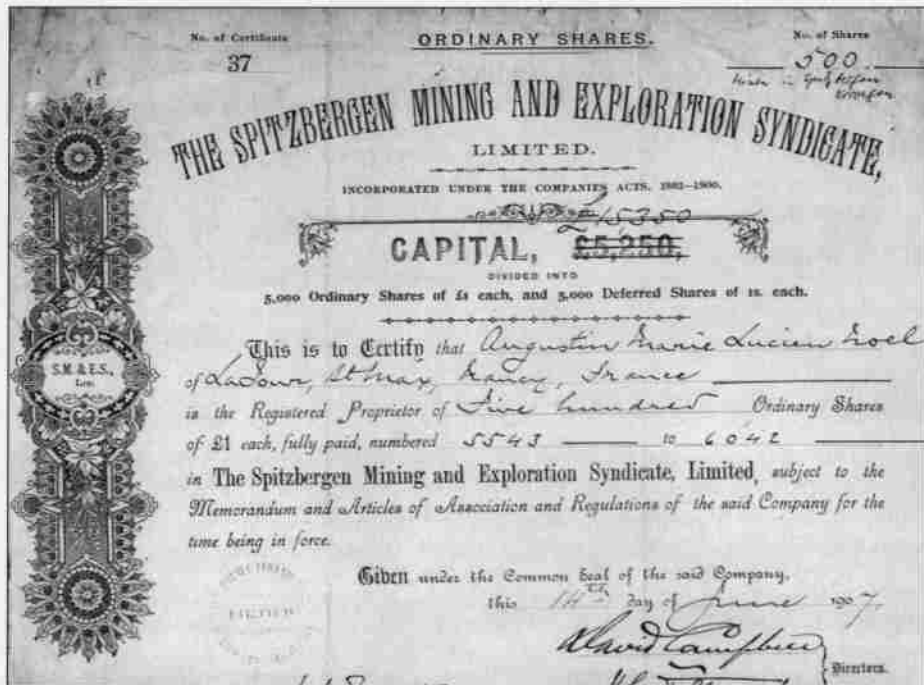 No. of Certificate
37
ORDINARY SHARES.
No. of Shares
500
THE SPITZBERGEN MINING AND EXPLORATION SYNDICATE,
LIMITED.
INCORPORATED UNDER THE COMPANIES ACTS, 1862–1900.
£15350
CAPITAL, £5,250,
DIVIDED INTO
5,000 Ordinary Shares of £1 each, and 5,000 Deferred Shares of 1s. each.
This is to Certify that Augustin Marie Lucien Noel
of LaTour, St Max, Nancy, France
is the Registered Proprietor of Five hundred Ordinary Shares
of £1 each, fully paid, numbered 5543 to 6042
in The Spitzbergen Mining and Exploration Syndicate, Limited, subject to the
Memorandum and Articles of Association and Regulations of the said Company for the
time being in force.
Given under the Common Seal of the said Company,
this 14th day of June 1907.
David Campbell
Directors.
S.M. & E.S.,
Lim.